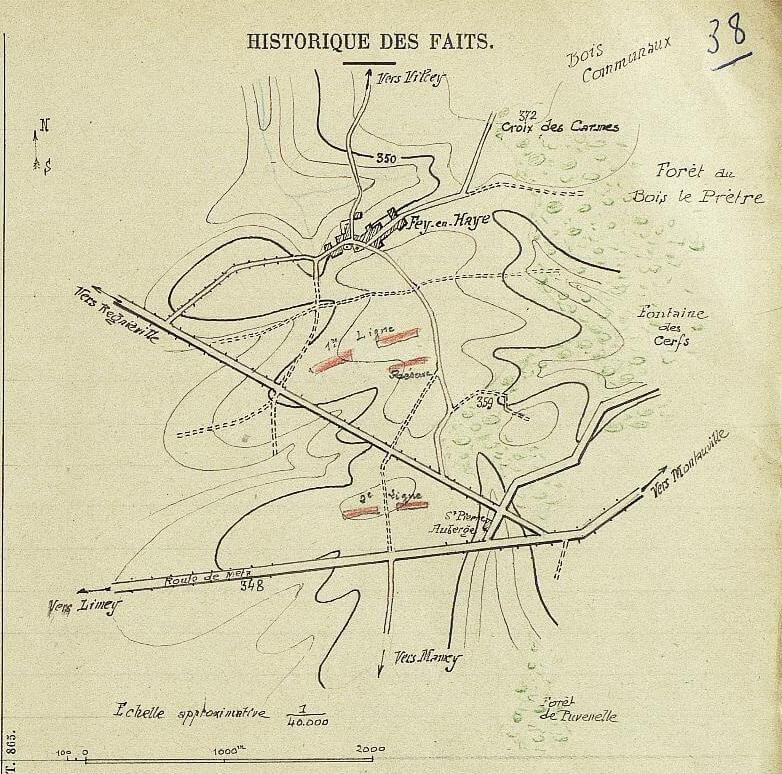 38
HISTORIQUE DES FAITS.
Bois
Communaux
Vers Vilcey
N
S
372
Croix des Carmes
350
Forêt du
Bois le Prêtre
Fey-en-Haye
Vers Regnéville
Fontaine
des
Cerfs
1re Ligne
359
Vers Montauville
2e Ligne
St Pierre
Auberge
Route de Metz
348
Vers Limey
Vers Mamey
Echelle approximative 1
40.000
Forêt
de Puvenelle
T. 865.
100 0 1000m 2000